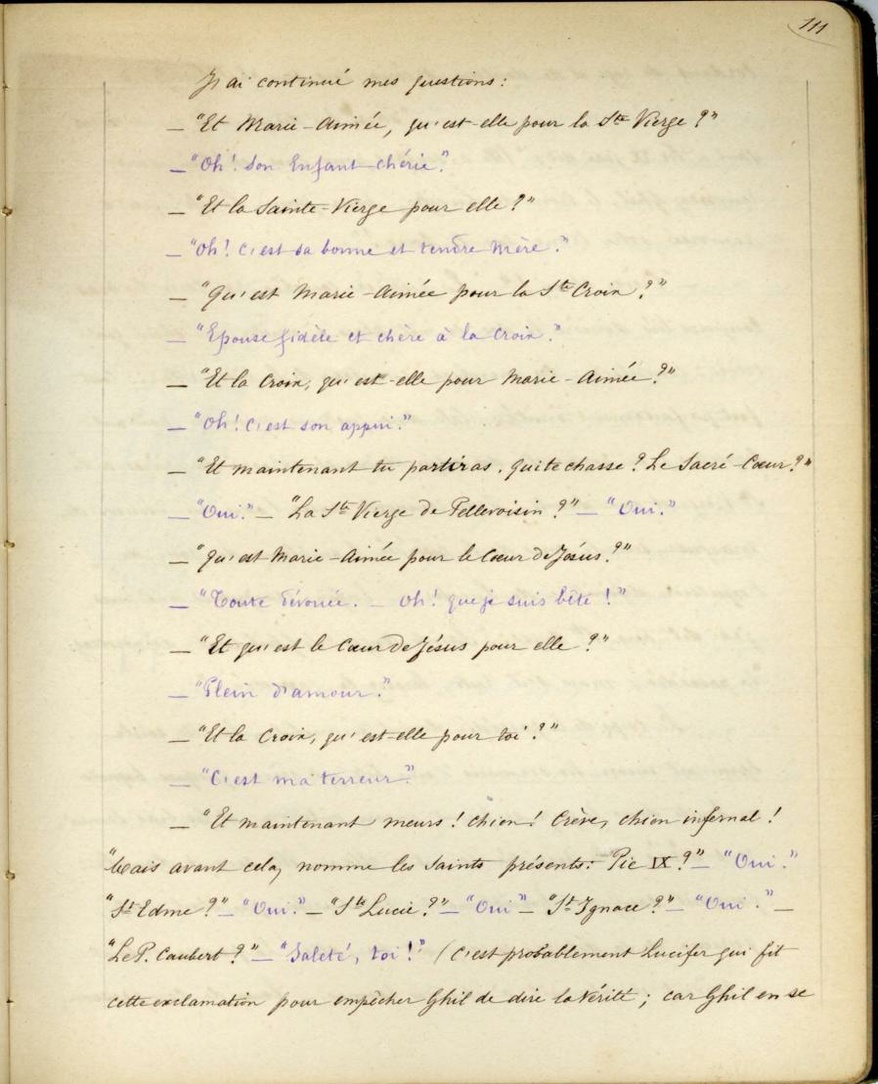 111
J'ai continué mes questions :
— "Et Marie-Aimée, qu'est-elle pour la Ste Vierge ?"
— "Oh ! Son Enfant chérie."
— "Et la Sainte-Vierge pour elle ?"
— "Oh ! C'est sa bonne et tendre Mère."
— "Qu'est Marie-Aimée pour la Ste Croix ?"
— "Epouse fidèle et chère à la Croix."
— "Et la Croix, qu'est-elle pour Marie-Aimée ?"
— "Oh ! C'est son appui."
— "Et maintenant tu partiras. qui te chasse ? Le Sacré-Cœur ?"
— "Oui." — "La Ste Vierge de Pellevoisin ?" — "Oui."
— "Qu'est Marie-Aimée pour le Cœur de Jésus ?"
— "Toute dévouée. — Oh ! que je suis bête !"
— "Et qu'est le Cœur de Jésus pour elle ?"
— "Plein d'amour."
— "Et la Croix, qu'est-elle pour toi ?"
— "C'est ma terreur."
— "Et maintenant meurs ! chien ! Crève, chien infernal !
"Mais avant cela, nomme les Saints présents : Pie IX ?" — "Oui."
"St Edme ?" — "Oui." — "Ste Lucie ?" — "Oui" — "St Ignace ?" — "Oui." —
"Le P. Caubert ?" — "Saleté, toi !" (C'est probablement Lucifer qui fit
cette exclamation pour empêcher Ghil de dire la Vérité ; car Ghil en se